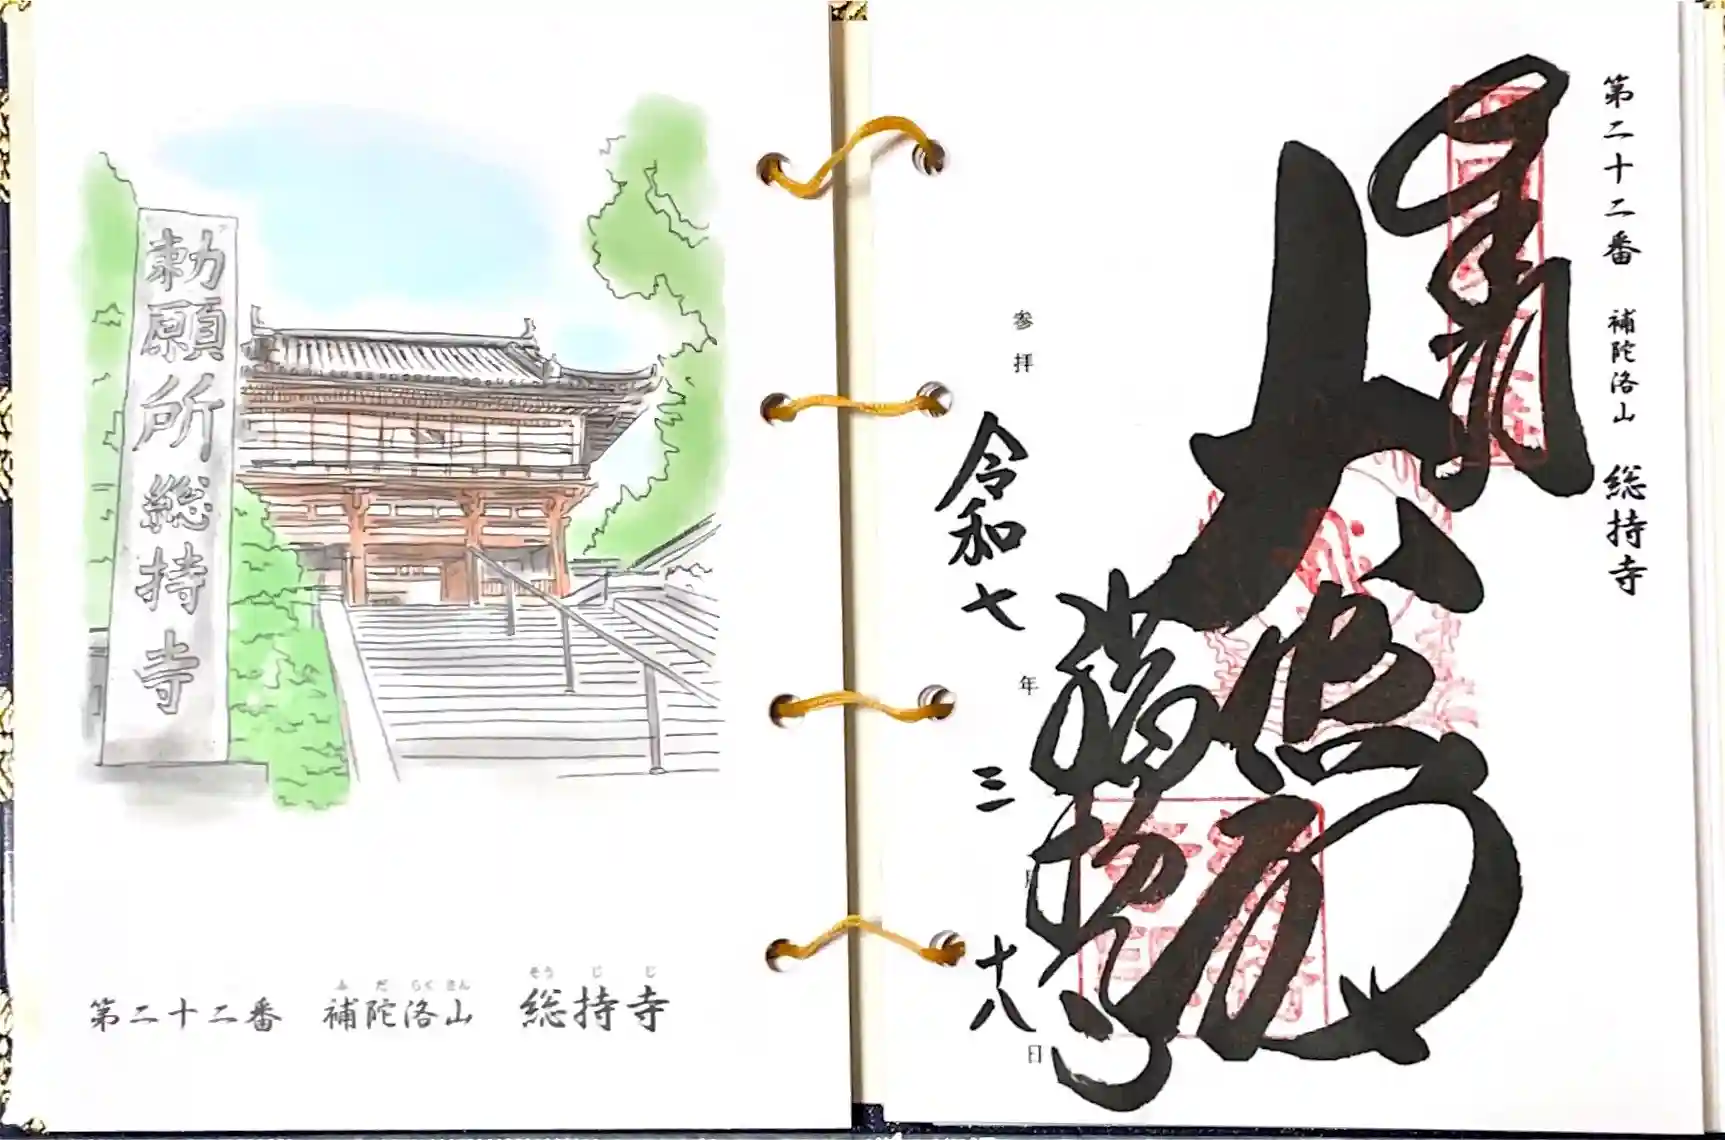 勅願所総持寺
ふだらくさん そうじじ
第二十二番 補陀洛山 総持寺
第二十二番 補陀洛山 総持寺
大悲殿
総持寺
参拝 令和七年三月十八日